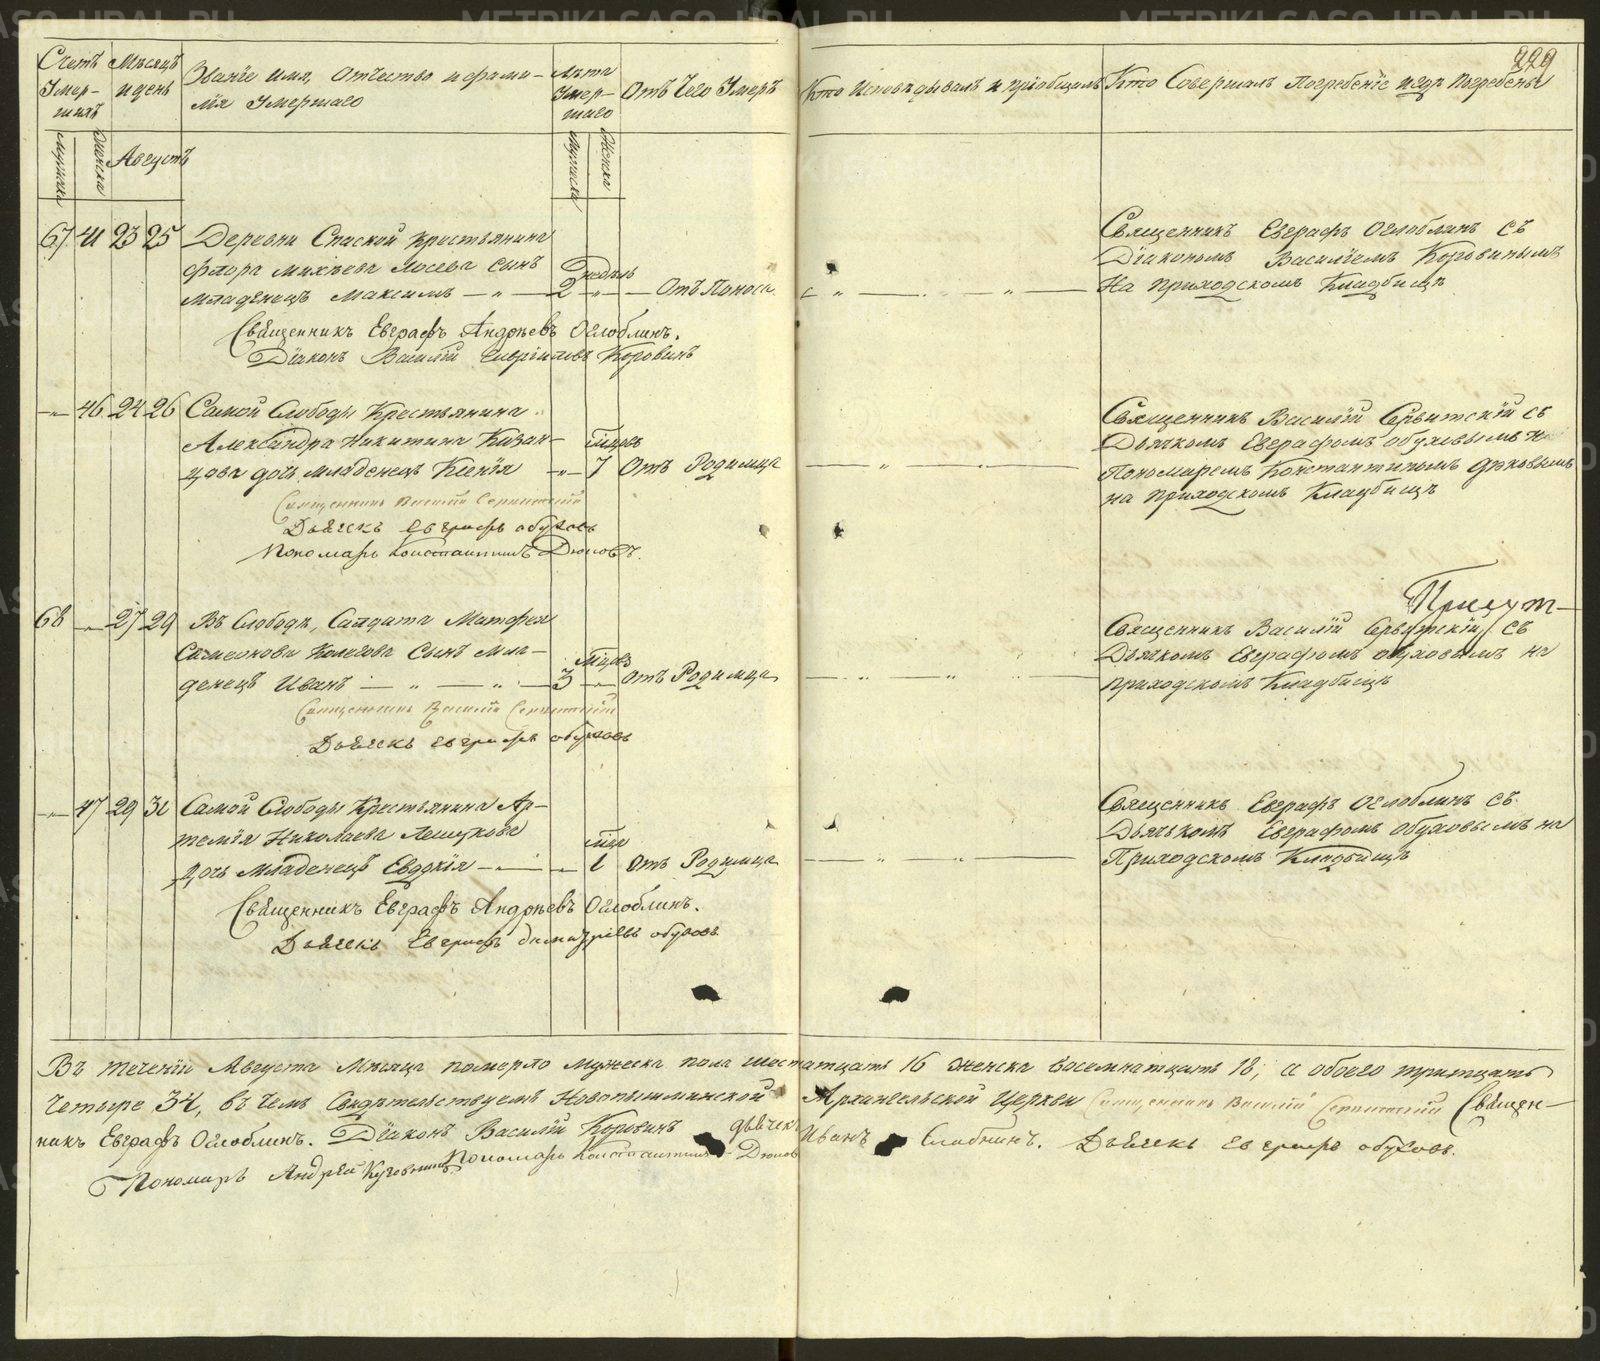 229
Счетъ Умершихъ
Мѣсяцъ и день
Званіе имя, отчество и фамилія Умершаго
Лѣта Умершаго
Отъ Чего Умеръ
Кто Исповѣдывалъ и пріобщалъ
Кто Совершалъ Погребеніе и гдѣ Погребены
Мужеска
Женска
Августъ
Мужеска
Женска
67 41 23 25 Деревни Спаской крестьянина
Флора Михѣева Лосева сынъ
младенецъ Максимъ
2 недѣль
Отъ Поноса
Священникъ Евграфъ Оглоблинъ съ
Діакономъ Василіемъ Коровинымъ
На приходскомъ Кладбищѣ
Священникъ Евграфъ Андреевъ Оглоблинъ.
Діаконъ Василій Коровинъ
46 24 26 Самой Слободы Крестьянина
Александра Никитина Казан-
цова дочь младенецъ Ксенія
7 Отъ Родимца
Священникъ Василій Серавитскій съ
Дьячкомъ Евграфомъ обуховымъ и
Пономаремъ Константиномъ Дюковымъ
на приходскомъ Кладбищѣ
Священникъ Василій
Дьячекъ Евграфъ обуховъ
Пономарь Константинъ Дюковъ.
68 27 29 Въ Слободѣ, Салдата Матфея
Симеонова Колегова Сынъ мла-
денецъ Иванъ
3 отъ Родимца
Священникъ Василій съ
Дьячкомъ Евграфомъ обуховымъ на
приходскомъ Кладбищѣ
Священникъ Василій
Дьячекъ Евграфъ обуховъ
47 29 31 Самой Слободы Крестьянина Ар-
темія Николаева Лешукова
дочь младенецъ Евдокія
1 отъ Родимца
Священникъ Евграфъ Оглоблинъ съ
Дьячькомъ Евграфомъ Обуховымъ на
Приходскомъ Кладбищѣ
Священникъ Евграфъ Андреевъ Оглоблинъ.
Дьячекъ Евграфъ обуховъ
Въ теченіи Августа Мѣсяца померло мужеска пола шестатцать 16 женска восемнатцать 18, а обоего тритцать
четыре 34, въ чемъ Свидѣтельствуемъ Новопышминской Архангельской Церкви Священникъ Василій Священ-
никъ Евграфъ Оглоблинъ. Діаконъ Василій Коровинъ дьячекъ Иванъ Дьячекъ Евграфъ обуховъ.
Пономарь Андрей Пономарь Константинъ Дюковъ